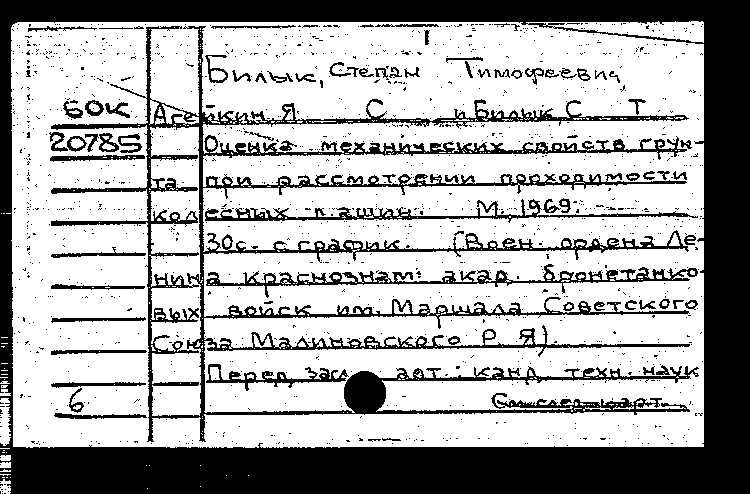 Билык, Степан Тимофеевич
БОК Агейкин Я С и Билык С Т
20785 Оценка механических свойств грун-
та при рассмотрении проходимости
колесных машин. М., 1969.
30с. с график. (Воен. ордена Ле-
нина краснознам. акад. бронетанко-
вых войск им. Маршала Советского
Союза Малиновского Р Я)
Перед загл. авт.: канд. техн. наук
6 См. след. карт.